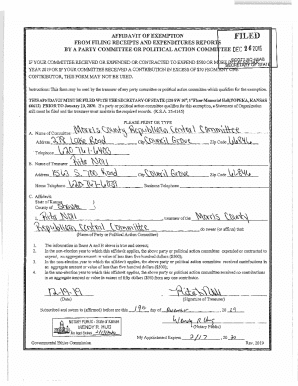 AFFIDAVIT OF EXEMPTION
FROM FILING RECEIPTS AND EXPENDITURES REPORTS
BY A PARTY COMMITTEE OR POLITICAL ACTION COMMITTEE
FILED
DEC 24 2019
SCOTT SCHWAB
SECRETARY OF STATE
IF YOUR COMMITTEE RECEIVED OR EXPENDED OR CONTRACTED TO EXPEND $500 OR MORE
YEAR 2019 OR IF YOUR COMMITTEE RECEIVED A CONTRIBUTION IN EXCESS OF $50 FROM ANY ONE
CONTRIBUTOR, THIS FORM MAY NOT BE USED.
Instruction: This form may be used by the treasurer of any party committee or political action committee which qualifies for the exemption.
THIS AFFIDAVIT MUST BE FILED WITH THE SECRETARY OF STATE (120 SW 10th, 1st Floor Memorial Hall, TOPEKA, KANSAS
66612) PRIOR TO January 10, 2020. If a party or political action committee qualifies for this exemption, a Statement of Organization
must still be filed and the treasurer must maintain the required records. (K.S.A. 25-4145)
PLEASE PRINT OR TYPE
A. Name of Committee: Morris County Republican Central Committee
Address: Lake Road City Council Grove Zip Code 66846
Telephone: 620-767-6403
B. Name of Treasurer: Rita
Address: 1563 S 700 Road City Council Grove Zip Code 66846
Home Telephone: Business Telephone:
C. Affidavit
State of Kansas
County of
I, Rita, treasurer of the Morris County
Republican Central Committee do swear (or affirm) that:
(Name of Party or Political Action Committee)
1. The information in Items A and B above is true and correct;
2. In the non-election year to which this affidavit applies, the above party or political committee expended or contracted to
expend, an aggregate amount or value of less than five hundred dollars ($500);
3. In the non-election year to which this affidavit applies, the above party or political committee received contributions in
an aggregate amount or value of less than five hundred dollars ($500); and
4. In the non-election year to which this affidavit applies, the above party or political committee received no contributions
in an aggregate amount in excess of fifty dollars ($50) from any one contributor.
12-19-19
(Date)
(Signature of Treasurer)
Subscribed and sworn to (affirmed) before me this 19th day of December, 2019
NOTARY PUBLIC - State of Kansas
WENDY R. HUG
(Notary Public)
My Appointment Expires
Governmental Ethics Commission
Rev. 2019